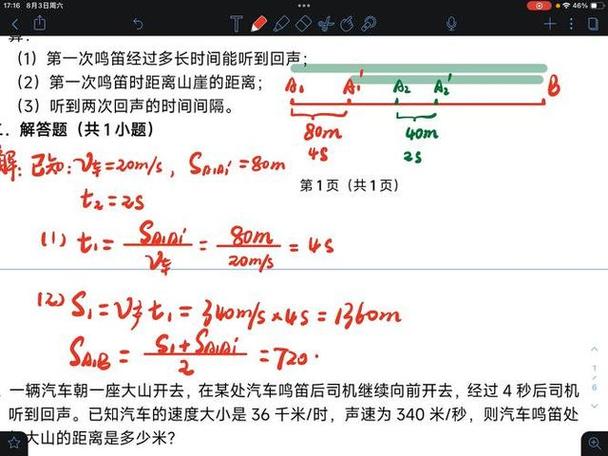 17:16 8月3日周六
46%
算：
（1）第一次鸣笛经过多长时间能听到回声；
（2）第一次鸣笛时距离山崖的距离；
（3）听到两次回声的时间间隔。
A₁ A₁′ A₂ A₂′ B
80m 40m
4s 2s
．解答题（共1小题）
解：已知：V车=20m/s，S_A₁A₁′=80m
第1页（共1页）
t₂=2s
(1) t₁ = S_A₁A₁′/V车 = 80m/20m/s = 4s
(2) S₁=V声t₁=340m/s×4s=1360m
S_A₁B = (S₁+S_A₁A₁′)/2 = 720
1/6
一辆汽车朝一座大山开去，在某处汽车鸣笛后司机继续向前开去，经过 4 秒后司机
听到回声。已知汽车的速度大小是 36 千米/时，声速为 340 米/秒，则汽车鸣笛处
大山的距离是多少米？